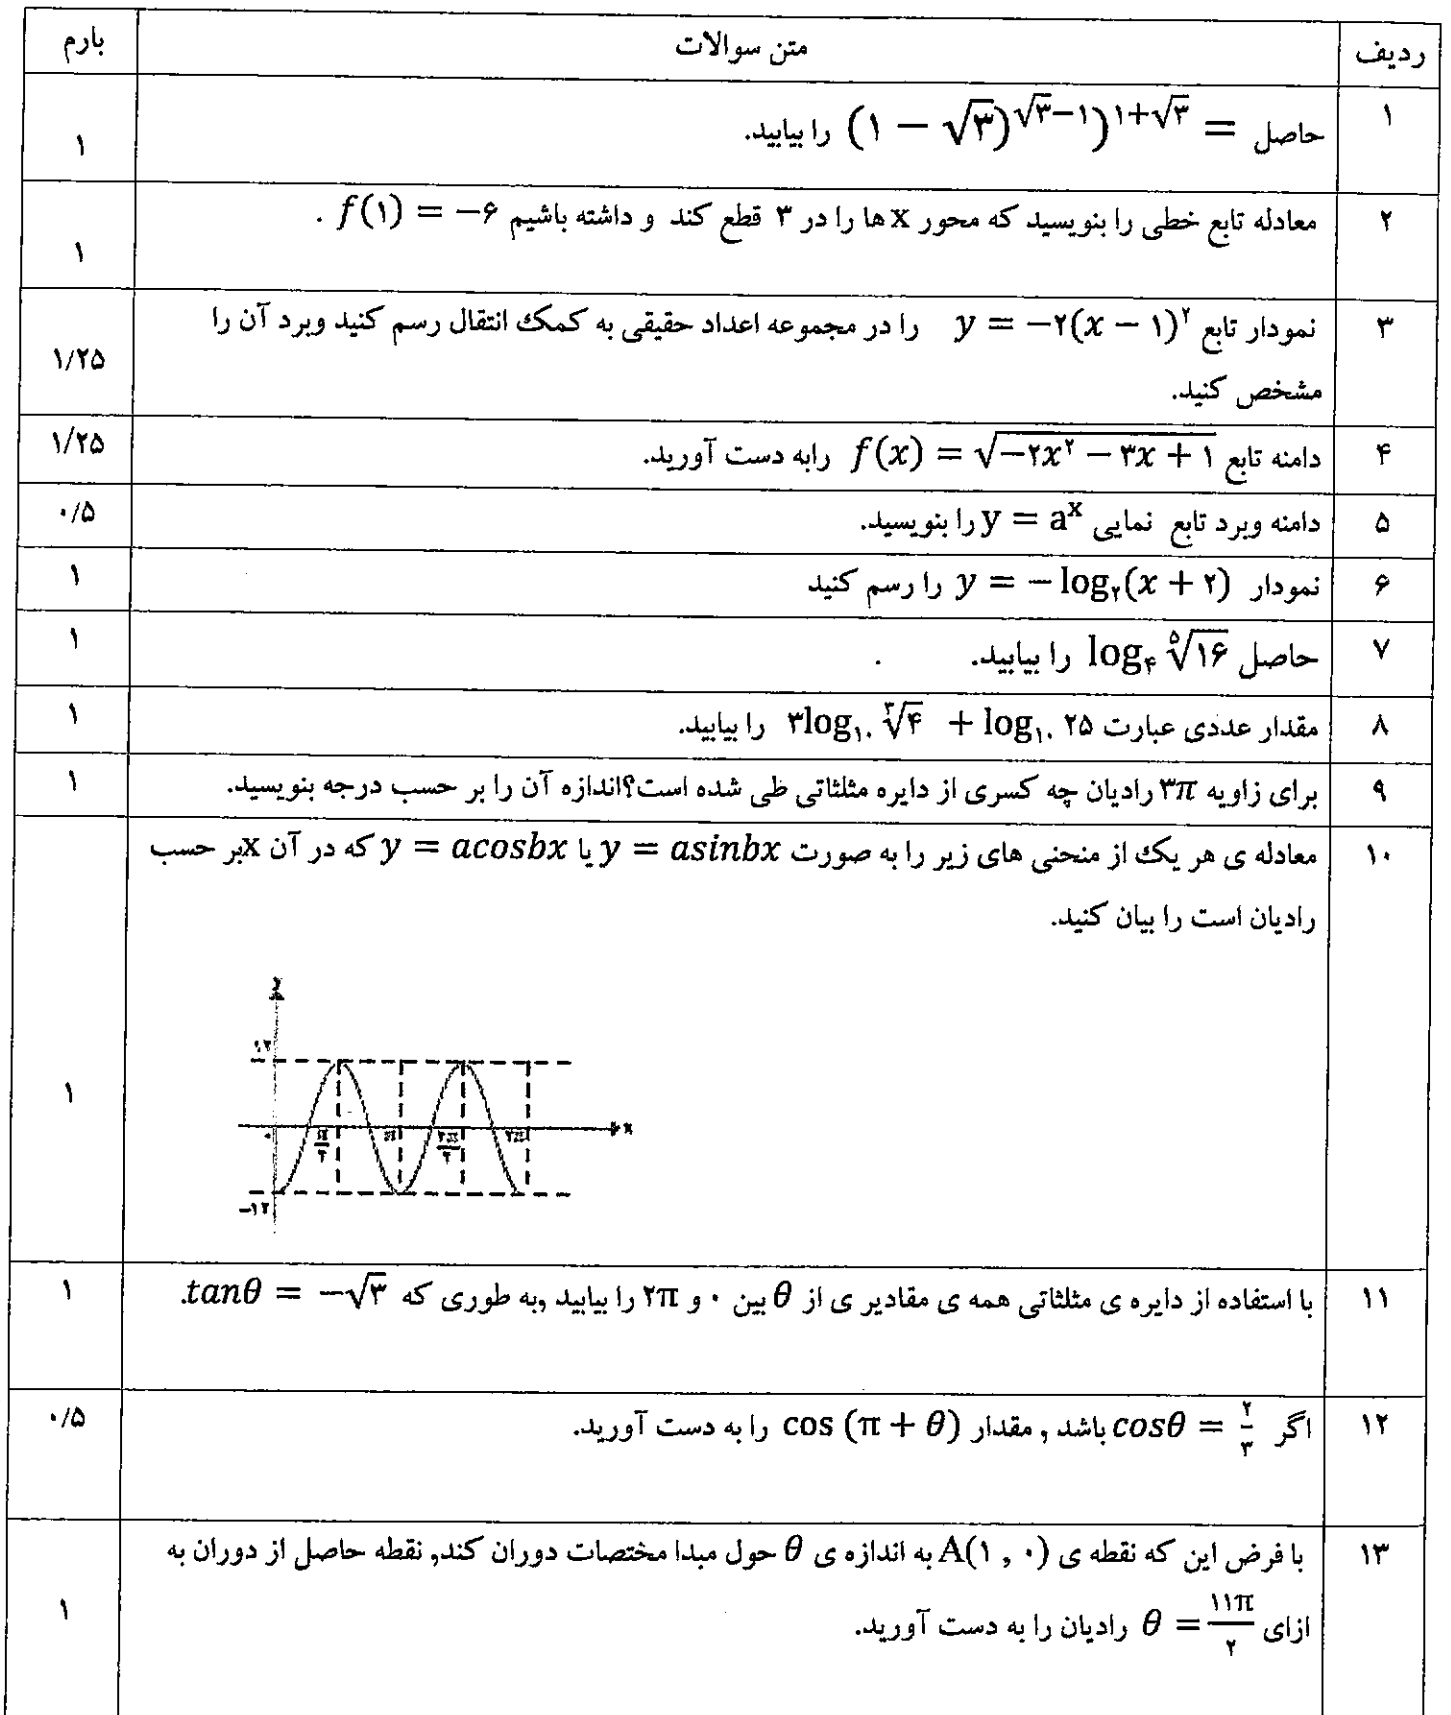 ردیف متن سوالات بارم
۱ حاصل = (۱ − √۳)^{√۳−۱})^{۱+√۳} را بیابید. ۱
۲ معادله تابع خطی را بنویسید که محور x ها را در ۳ قطع کند و داشته باشیم f(۱) = −۶ . ۱
۳ نمودار تابع y = −۲(x − ۱)^۲ را در مجموعه اعداد حقیقی به کمک انتقال رسم کنید وبرد آن را
مشخص کنید. ۱/۲۵
۴ دامنه تابع f(x) = √(−۲x^۲ − ۳x + ۱) رابه دست آورید. ۱/۲۵
۵ دامنه وبرد تابع نمایی y = a^x را بنویسید. ۰/۵
۶ نمودار y = − log_۲(x + ۲) را رسم کنید ۱
۷ حاصل log_۴ ⁵√۱۶ را بیابید. ۱
۸ مقدار عددی عبارت ۳log_۱۰ ³√۴ + log_۱۰ ۲۵ را بیابید. ۱
۹ برای زاویه ۳π رادیان چه کسری از دایره مثلثاتی طی شده است؟اندازه آن را بر حسب درجه بنویسید. ۱
۱۰ معادله ی هر یک از منحنی های زیر را به صورت y = asinbx یا y = acosbx که در آن x بر حسب
رادیان است را بیان کنید. ۱
y
۱۲
۰ π/۲ π ۳π/۲ ۲π x
−۱۲
۱۱ با استفاده از دایره ی مثلثاتی همه ی مقادیر ی از θ بین ۰ و ۲π را بیابید ,به طوری که tanθ = −√۳. ۱
۱۲ اگر cosθ = ۲/۳ باشد , مقدار cos (π + θ) را به دست آورید. ۰/۵
۱۳ با فرض این که نقطه ی A(۱ , ۰) به اندازه ی θ حول مبدا مختصات دوران کند, نقطه حاصل از دوران به
ازای θ = ۱۱π/۲ رادیان را به دست آورید. ۱